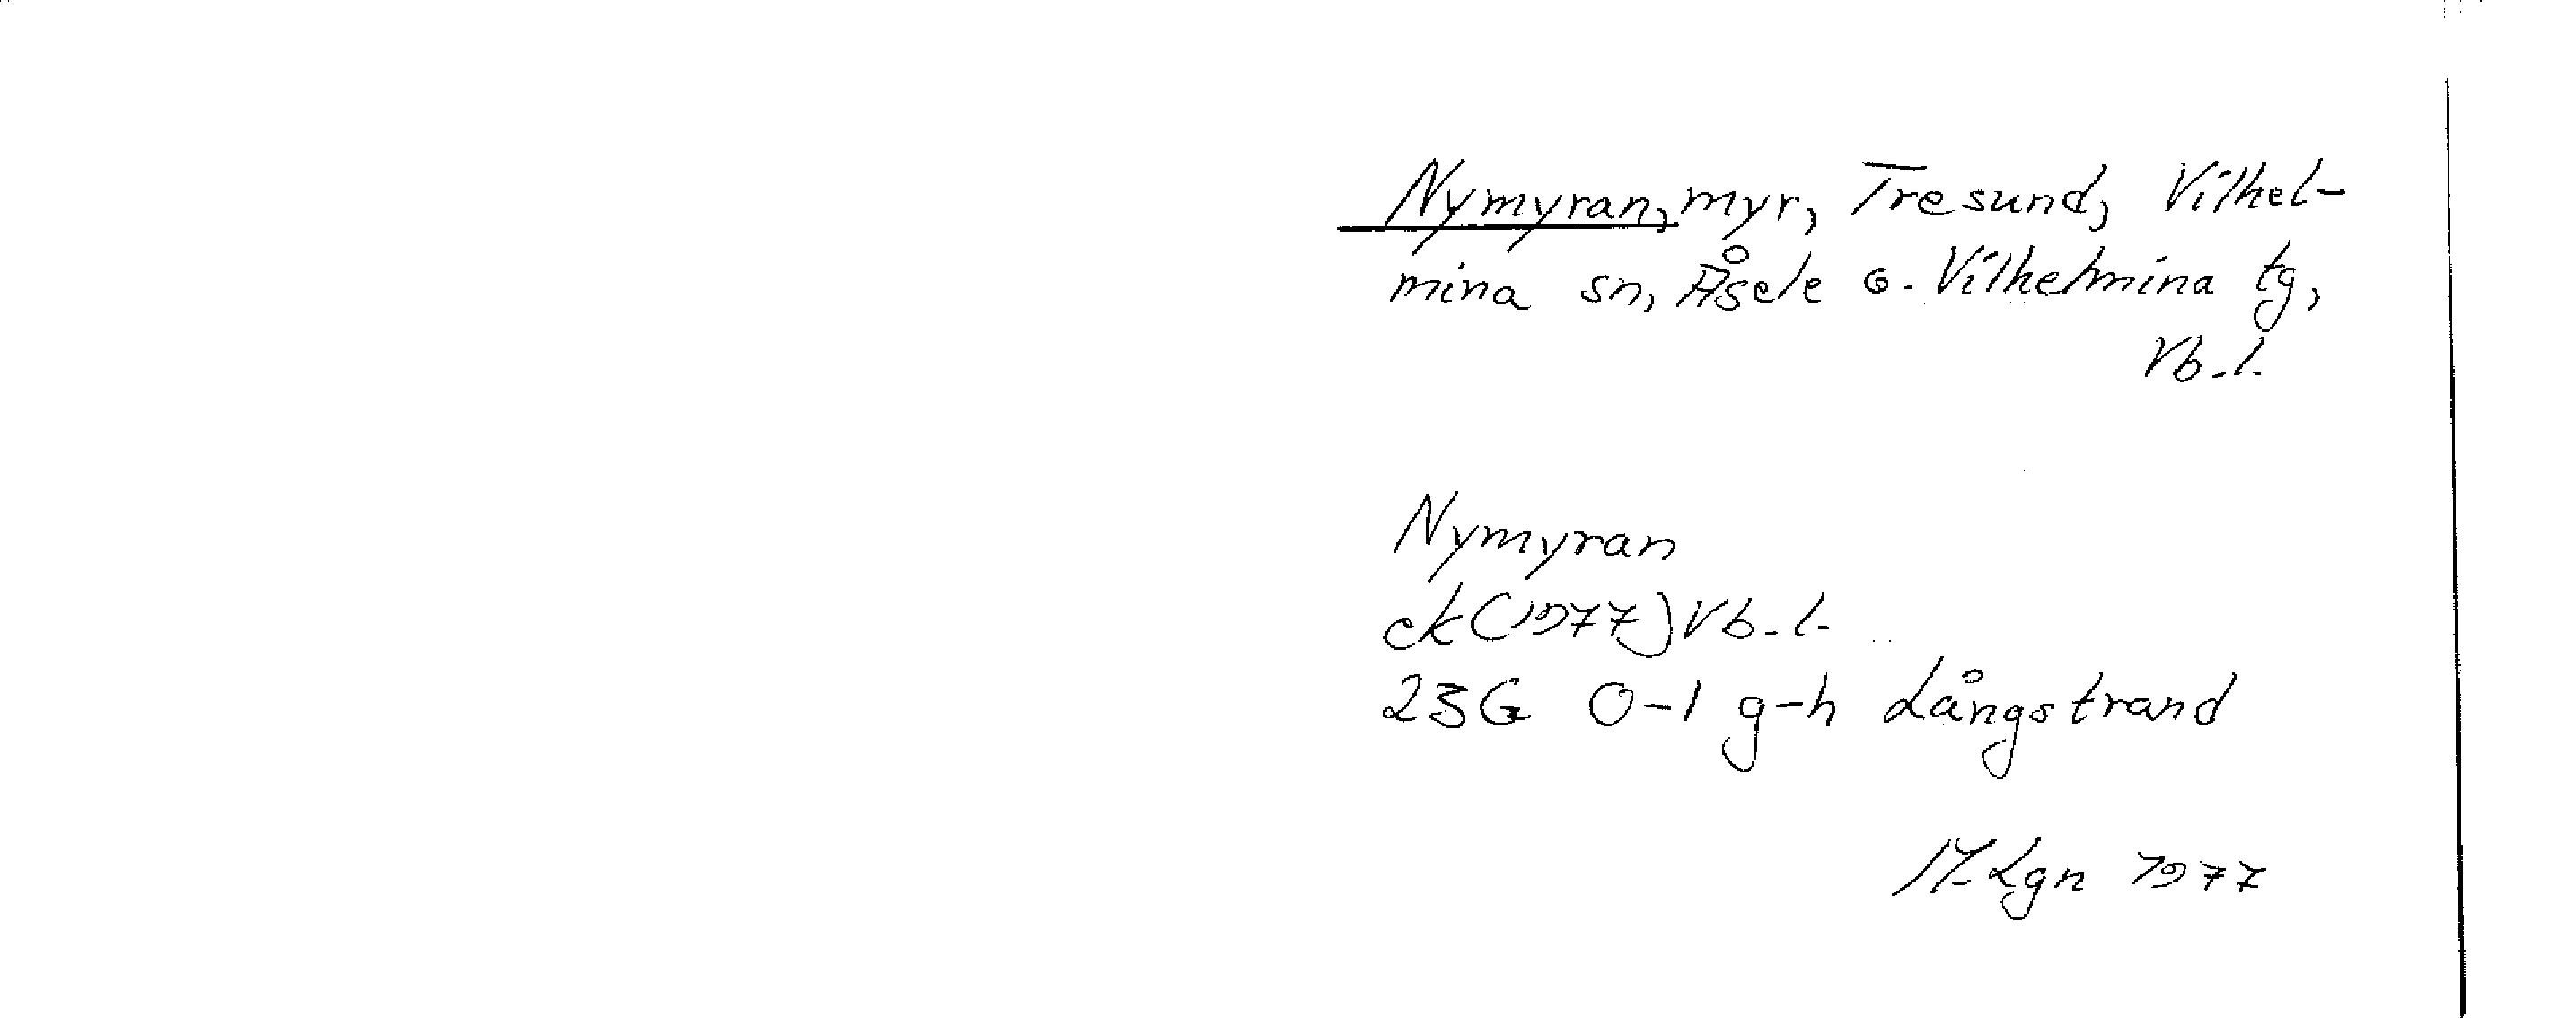 Nymyran, myr, Tresund, Vilhel-
mina sn, Åsele o. Vilhelmina tg,
Vb. l.
Nymyran
ek (1977) Vb. l.
23G 0-1 g-h Långstrand
Lgn 1977